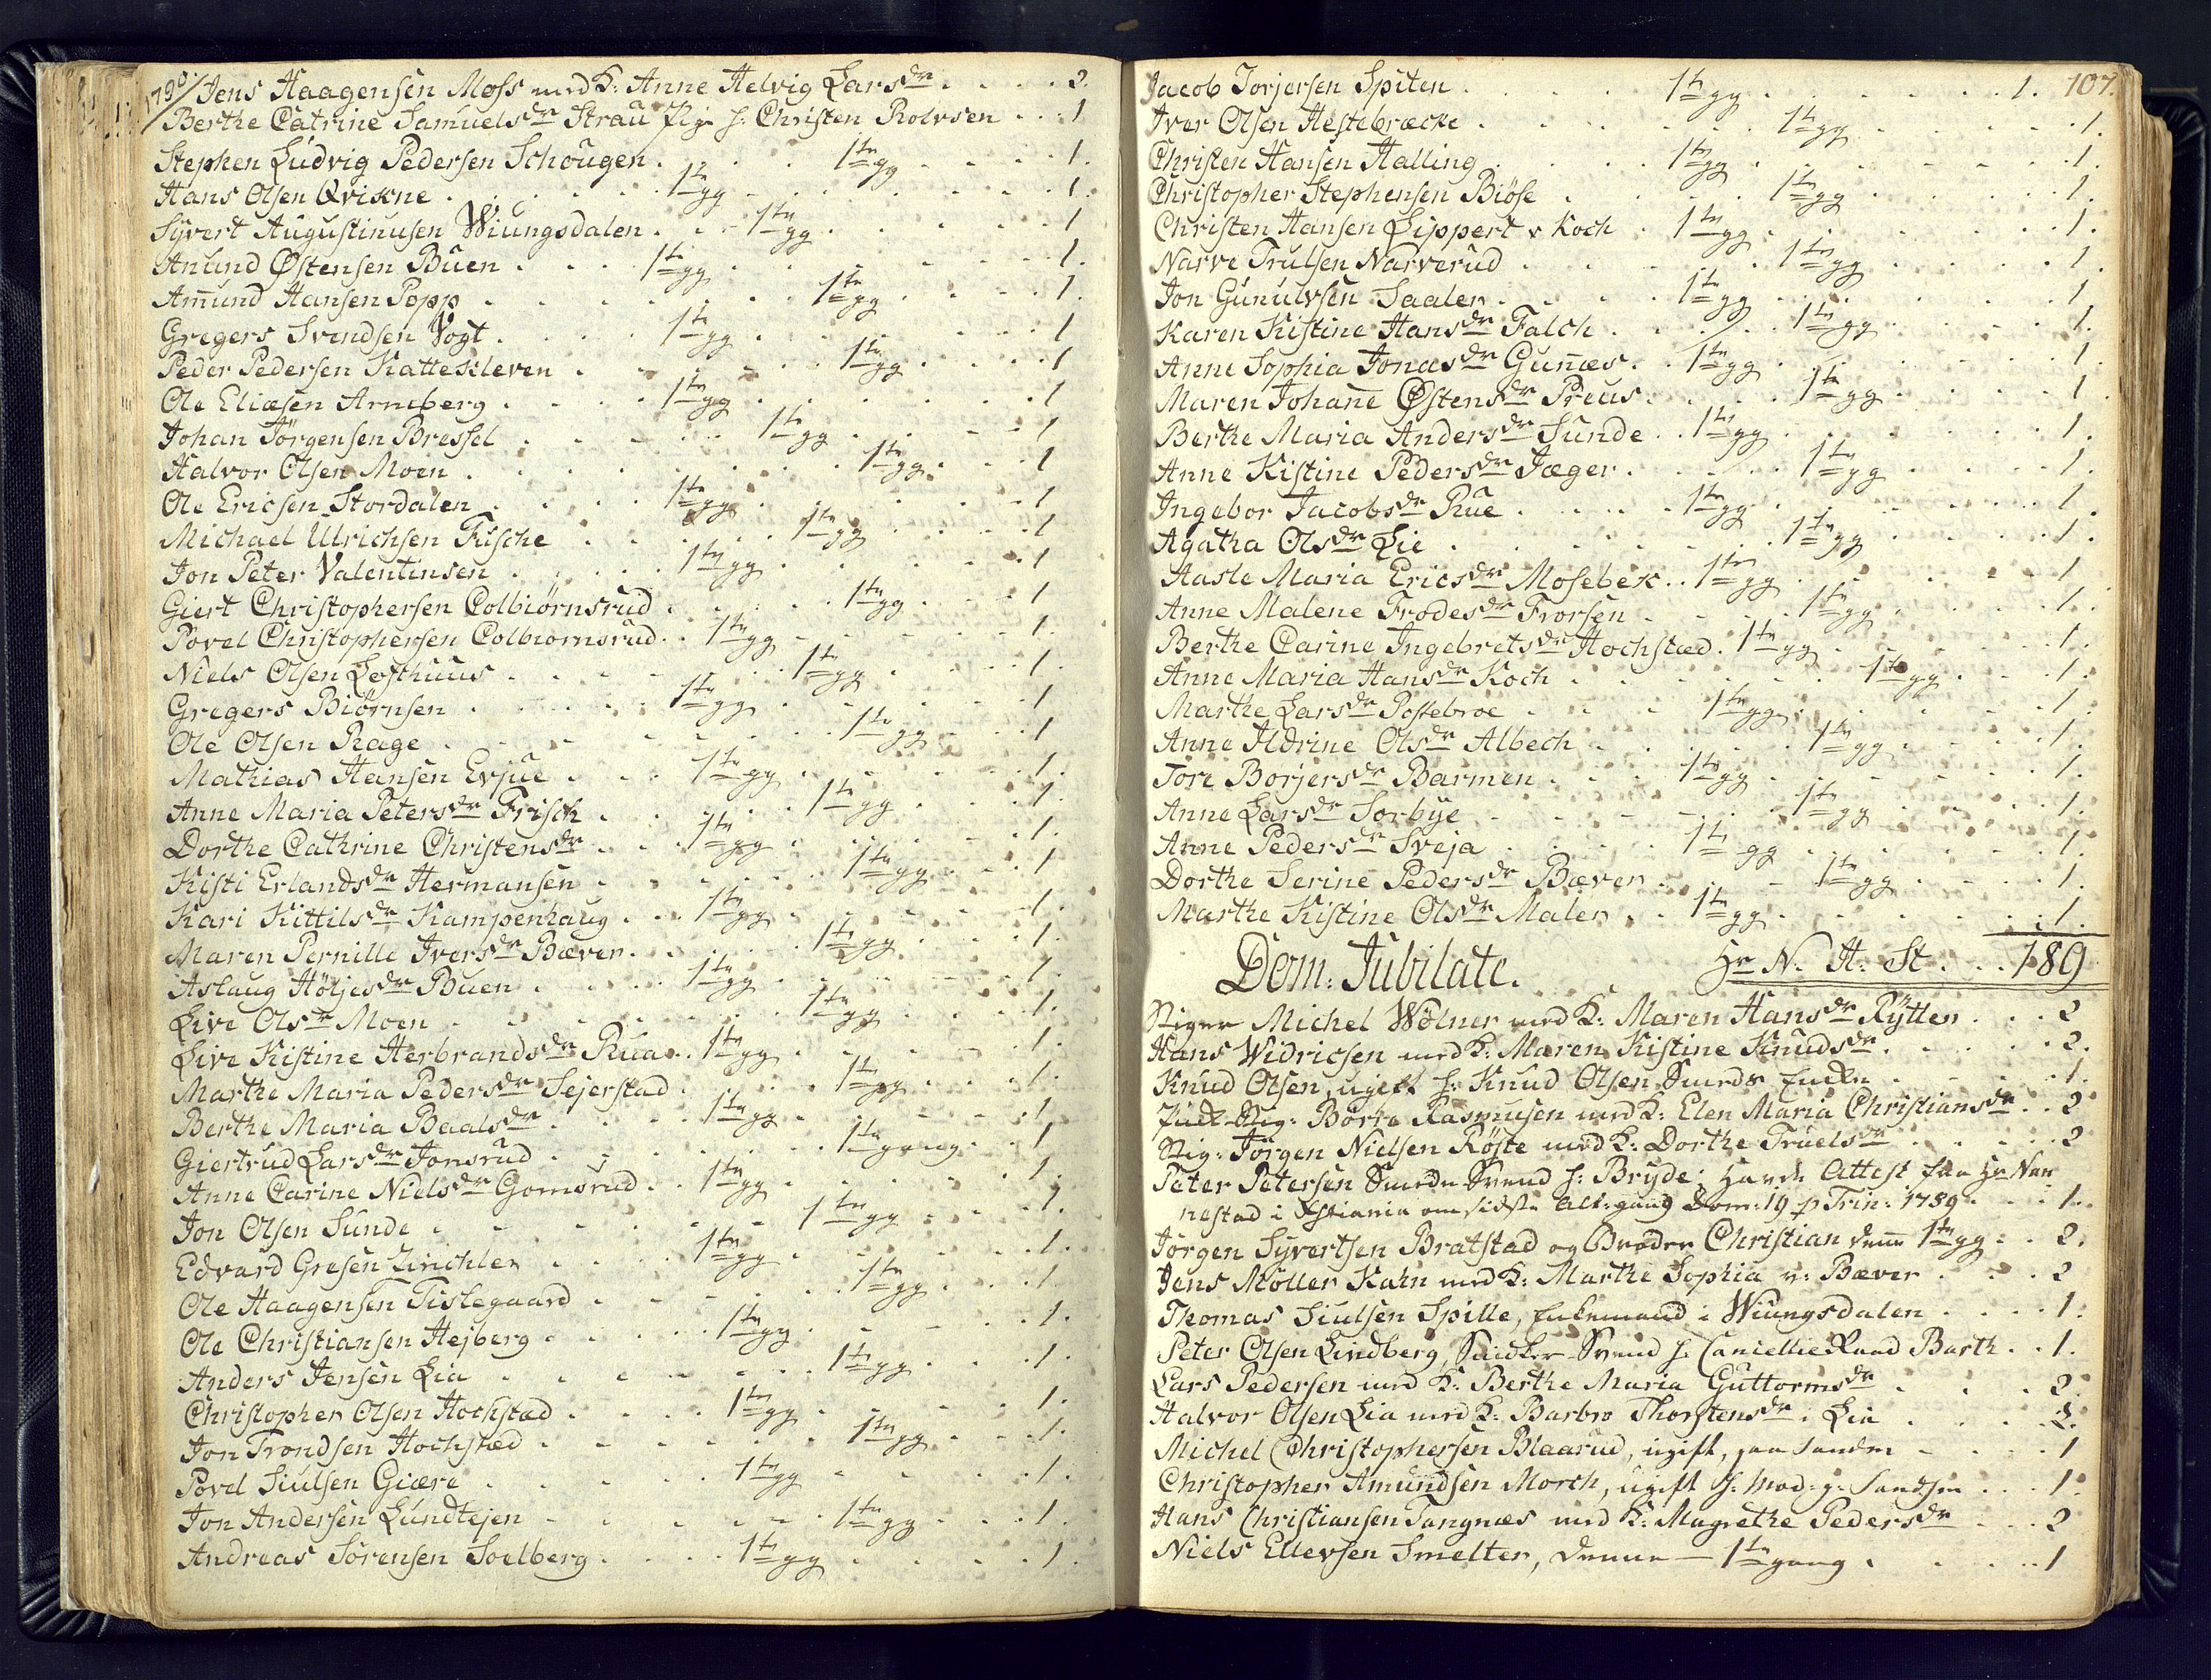 1790/ Jens Haagensen Moss med K: Anne Helvig Larsdr . . . . 2.
Berthe Catrine Samuelsdr Strau Pige h: Christen Rolvsen . . . 1
Stephen Ludvig Pedersen Schougen . . . 1te gg . . . 1.
Hans Olsen Qvisne . . . 1te gg . . . 1.
Syvert Augustinusen Wiungsdalen . . . 1te gg . . . 1
Anund Østensen Buen . . . 1te gg . . . 1.
Amund Hansen Popp . . . 1te gg . . . 1.
Gregers Svendsen Vogt . . . 1te gg . . . 1
Peder Pedersen Kattesleven . . . 1te gg . . . 1
Ole Eliæsen Arneberg . . . 1te gg . . . 1
Johan Jørgensen Bressel . . . 1te gg . . . 1
Halvor Olsen Moen . . . 1te gg . . . 1
Ole Ericsen Stordalen . . . 1te gg . . . 1
Michael Ulrichsen Fusche . . . 1te gg . . . 1
Jon Peter Valentinsen . . . 1te gg . . . 1
Giert Christophersen Colbiørnsrud . . . 1te gg . . . 1
Povel Christophersen Colbiornsrud . . 1te gg . . . 1
Niels Olsen Lofthuus . . . 1te gg . . . 1.
Gregers Biörnsen . . . 1te gg . . . 1
Ole Olsen Rage . . . 1te gg . . . 1
Mathias Hansen Evjue . . . 1te gg . . . 1.
Anne Maria Petersdr Frisch . . . 1te gg . . . 1.
Dorthe Cathrine Christensdr . . . 1te gg . . . 1.
Kisti Erlandsdr Hermansen . . . 1te gg . . . 1
Kari Kittilsdr Kampenhaug . . . 1te gg . . . 1.
Maren Pernille Iversdr Bæver . . . 1te gg . . . 1.
Aslaug Höljesdr Buen . . . 1te gg . . . 1
Live Olsdr Moen . . . 1te gg . . . 1.
Live Kistine Herbrandsdr Rua . . 1te gg . . . 1.
Marthe Maria Pedersdr Sejerstad . . . 1te gg . . . 1.
Berthe Maria Baalsdr . . . 1te gg . . . 1
Giertrud Larsdr Jonsrud . . . 1te gang . . 1
Anne Carine Nielsdr Gomsrud . . 1te gg . . . 1.
Jon Olsen Sunde . . . 1te gg . . . 1.
Edvard Gresen Zinchler . . . 1te gg . . . 1.
Ole Haagensen Tislegaard . . . 1te gg . . . 1
Ole Christiansen Hejberg . . . 1te gg . . . 1.
Anders Jensen Lia . . . 1te gg . . . 1.
Christopher Olsen Hochstad . . . 1te gg . . . 1.
Jon Trondsen Hochstæd . . . 1te gg . . . 1.
Povel Siulsen Giære . . . 1te gg . . . 1.
Jon Andersen Lundtejen . . . 1te gg . . . 1.
Andreas Sörensen Soelberg . . . 1te gg . . . 1.
107.
Jacob Torjersen Spiten . . . 1te gg . . . 1.
Iver Olsen Hestebræcke . . . 1te gg . . . 1.
Christen Hansen Halling . . . 1te gg . . . 1.
Christopher Stephensen Biöse . . . 1te gg . . . 1.
Christen Hansen Lippert v Koch . 1te gg . . . 1.
Narve Trulsen Narverud . . . 1te gg . . . 1.
Jon Gunulvsen Saaler . . . 1te gg . . . 1
Karen Kistine Hansdr Falch . . . 1te gg . . . 1.
Anne Sophia Jonasdr Gunæs . . 1te gg . . . 1
Maren Johane Østensdr Preus . . . 1te gg . . . 1
Berthe Maria Andersdr Sunde . . 1te gg . . . 1.
Anne Kistine Pedersdr Jæger . . . 1te gg . . . 1.
Ingebor Jacobsdr Rue . . . 1te gg . . . 1.
Agatha Olsdr Lie . . . 1te gg . . . 1.
Aasle Maria Ericsdr Mosebek . . 1te gg . . . 1
Anne Malene Frodesdr Frorsen . . . 1te gg . . . 1.
Berthe Carine Ingebretsdr Hochstæd . 1te gg . . . 1.
Anne Maria Hansdr Koch . . . 1te gg . . . 1.
Marthe Larsdr Postebroe . . . 1te gg . . . 1
Anne Ildrine Olsdr Albech . . . 1te gg . . . 1.
Tore Borjersdr Barmen . . . 1te gg . . . 1.
Anne Larsdr Sorbÿe . . . 1te gg . . . 1.
Anne Pedersdr Sveja . . . 1te gg . . . 1.
Dorthe Serine Pedersdr Bæver . . . 1te gg . . . 1.
Marthe Kistine Olsdr Maler . . 1te gg . . . 1.
Dom: Jubilate. Hr N. H. St . . . 189
Stiger Michel Wölner med K: Maren Hansdr Rÿtter . . . 2
Hans Widricsen med K: Maren Kistine Knudsdr . . . 2.
Knud Olsen, ugift h: Knud Olsen Smeds Encke . . . 1.
Börre Rasmusen med K: Elen Maria Christiansdr . . 2
Stig: Jörgen Nielsen Röste med K: Dorthe Truelsdr . . . 2
Peter Petersen Smede Svend h: Bryde; havde Attest fra Hr Nan
nestad i Xstiania om sidste Alt:gang Dom: 19 p Trin: 1789 . . . 1.
Jörgen Syvertsen Bratstad og Broder Christian denne 1te gg . . 2.
Jens Möller Kahn med K: Marthe Sophia v: Bæver . . . 2
Thomas Siulsen Spille, Enkemand i Wiungsdalen . . . 1.
Peter Olsen Lindberg, Snidker Svend h: Cancellie Raad Barth . . 1.
Lars Pedersen med K: Berthe Maria Guttormsdr . . . 2.
Halvor Olsen Lia med K: Barbro Thorstensdr i Lia . . . 2.
Michel Christophersen Blaarud, ugift, paa Sanden . . . 1
Christopher Amundsen Morch, ugift h: Mad: g: Sandsen . . . 1.
Hans Christiansen Tangnæs med K: Magrethe Pedersdr . . . 2
Niels Ellevsen Smelter, denne — 1te gang . . . 1